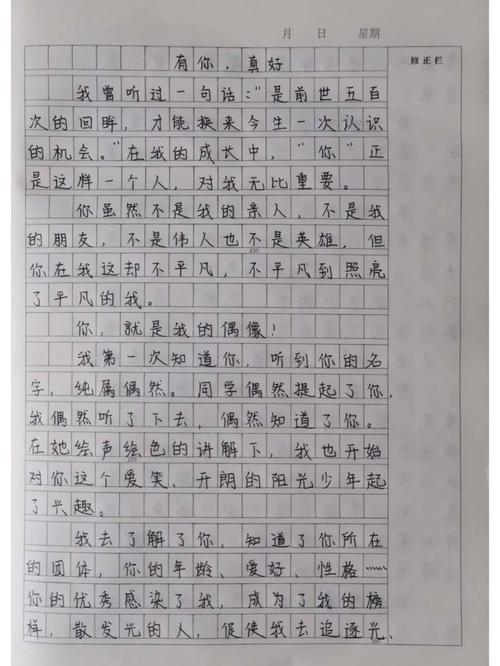 月 日 星期
修正栏
有你，真好
我曾听过一句话："是前世五百
次的回眸，才能换来今生一次认识
的机会。"在我的成长中，"你"正
是这样一个人，对我无比重要。
你虽然不是我的亲人，不是我
的朋友，不是伟人也不是英雄，但
你在我这却不平凡，不平凡到照亮
了平凡的我。
你，就是我的偶像！
我第一次知道你，听到你的名
字，纯属偶然。同学偶然提起了你，
我偶然听了下去，偶然知道了你。
在她绘声绘色的讲解下，我也开始
对你这个爱笑、开朗的阳光少年起
了兴趣。
我去了解了你，知道了你所在
的团体，你的年龄、爱好、性格……
你的优秀感染了我，成为了我的榜
样，散发光的人，促使我去追逐光、